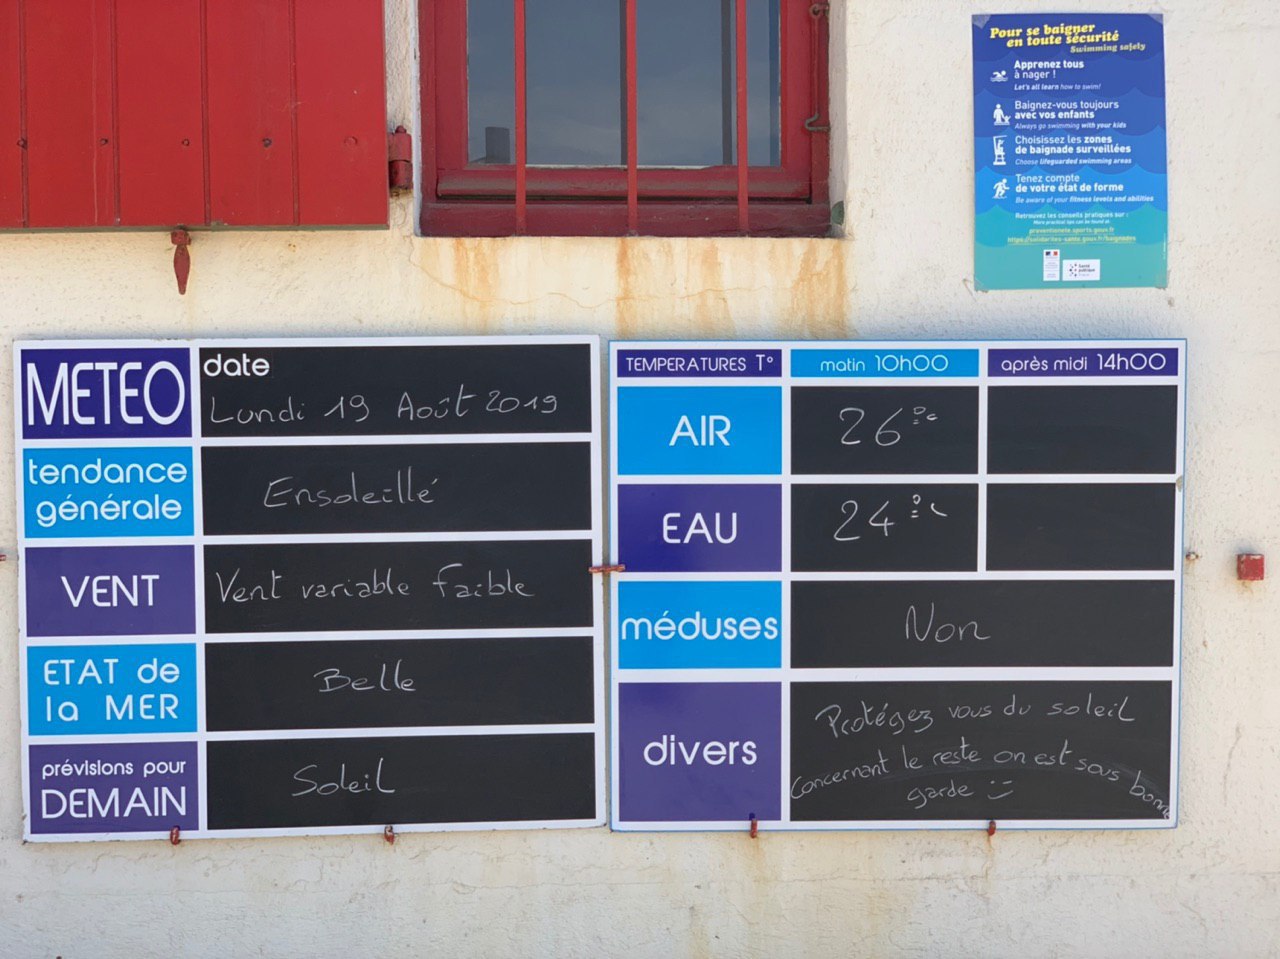 Pour se baigner
en toute sécurité
Swimming safely
Apprenez tous
à nager !
Let's all learn how to swim!
Baignez-vous toujours
avec vos enfants
Always go swimming with your kids
Choisissez les zones
de baignade surveillées
Choose lifeguarded swimming areas
Tenez compte
de votre état de forme
Be aware of your fitness levels and abilities
Retrouvez les conseils pratiques sur :
More practical tips can be found at:
preventionete.sports.gouv.fr
https://solidarites-sante.gouv.fr/baignades
METEO
date
Lundi 19 Août 2019
tendance
générale
Ensoleillé
VENT
Vent variable faible
ETAT de
la MER
Belle
prévisions pour
DEMAIN
Soleil
TEMPERATURES T° matin 10h00 après midi 14h00
AIR 26°C
EAU 24°C
méduses Non
divers
Protégez vous du soleil
Concernant le reste on est sous bonne
garde